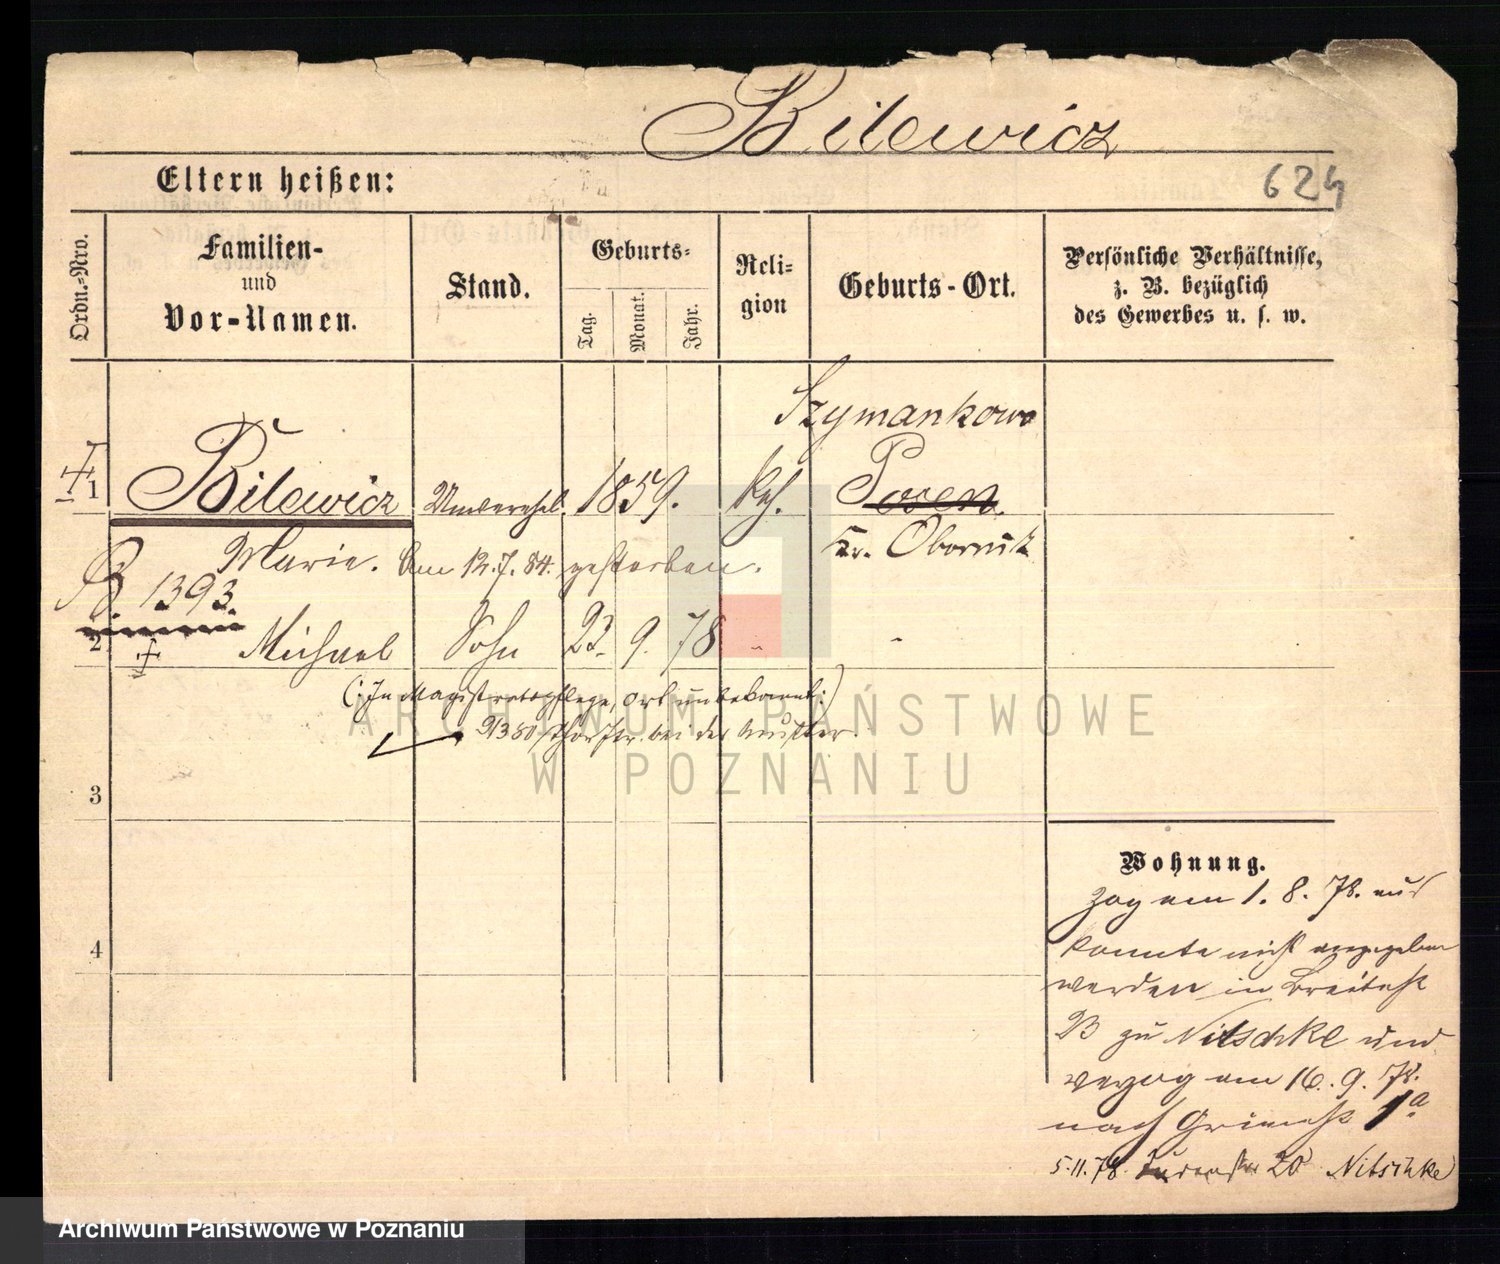 Bilewicz
Eltern heißen:
624
Ordn.-Nro.
Familien-
und
Vor-Namen.
Stand.
Geburts-
Tag.
Monat.
Jahr.
Reli-
gion
Geburts-Ort.
Persönliche Verhältnisse,
z. B. bezüglich
des Gewerbes u. s. w.
Szymankowo
1 Bilewicz Unverehel. 1859. kth. Posen
Marie. Am 12.7.84. gestorben. Kr. Obornik
B. 1393.
2 Michael Sohn 23. 9. 78
(: In Magistratspflege, Ort unbekannt :)
bei der Mutter.
3
4
Wohnung.
zog am 1. 8. 78. aus
konnte nicht angegeben
werden in Breitestr
23 zu Nitschke und
verzog am 16. 9. 78.
nach Grünestr 1a
5.11.78. 20 Nitschke
ARCHIWUM PAŃSTWOWE
W POZNANIU
Archiwum Państwowe w Poznaniu